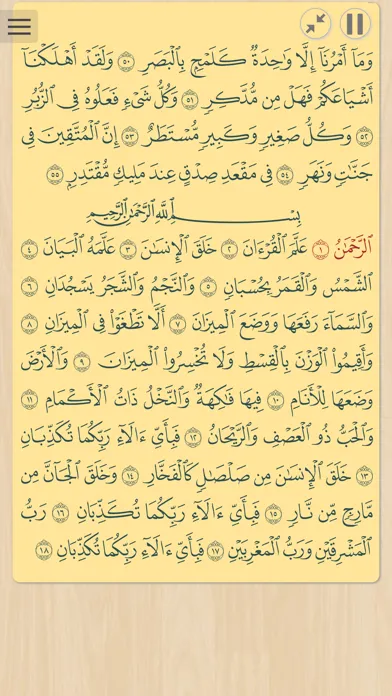 وَمَآ أَمْرُنَآ إِلَّا وَٰحِدَةٌ كَلَمْحٍۭ بِٱلْبَصَرِ ٥٠ وَلَقَدْ أَهْلَكْنَآ
أَشْيَاعَكُمْ فَهَلْ مِن مُّدَّكِرٍ ٥١ وَكُلُّ شَىْءٍ فَعَلُوهُ فِى ٱلزُّبُرِ
٥٢ وَكُلُّ صَغِيرٍ وَكَبِيرٍ مُّسْتَطَرٌ ٥٣ إِنَّ ٱلْمُتَّقِينَ فِى
جَنَّٰتٍ وَنَهَرٍ ٥٤ فِى مَقْعَدِ صِدْقٍ عِندَ مَلِيكٍ مُّقْتَدِرٍۭ ٥٥
بِسْمِ ٱللَّهِ ٱلرَّحْمَٰنِ ٱلرَّحِيمِ
ٱلرَّحْمَٰنُ ١ عَلَّمَ ٱلْقُرْءَانَ ٢ خَلَقَ ٱلْإِنسَٰنَ ٣ عَلَّمَهُ ٱلْبَيَانَ ٤
ٱلشَّمْسُ وَٱلْقَمَرُ بِحُسْبَانٍ ٥ وَٱلنَّجْمُ وَٱلشَّجَرُ يَسْجُدَانِ ٦
وَٱلسَّمَآءَ رَفَعَهَا وَوَضَعَ ٱلْمِيزَانَ ٧ أَلَّا تَطْغَوْا۟ فِى ٱلْمِيزَانِ ٨
وَأَقِيمُوا۟ ٱلْوَزْنَ بِٱلْقِسْطِ وَلَا تُخْسِرُوا۟ ٱلْمِيزَانَ ٩ وَٱلْأَرْضَ
وَضَعَهَا لِلْأَنَامِ ١٠ فِيهَا فَٰكِهَةٌ وَٱلنَّخْلُ ذَاتُ ٱلْأَكْمَامِ ١١
وَٱلْحَبُّ ذُو ٱلْعَصْفِ وَٱلرَّيْحَانُ ١٢ فَبِأَىِّ ءَالَآءِ رَبِّكُمَا تُكَذِّبَانِ
١٣ خَلَقَ ٱلْإِنسَٰنَ مِن صَلْصَٰلٍ كَٱلْفَخَّارِ ١٤ وَخَلَقَ ٱلْجَآنَّ مِن
مَّارِجٍ مِّن نَّارٍ ١٥ فَبِأَىِّ ءَالَآءِ رَبِّكُمَا تُكَذِّبَانِ ١٦ رَبُّ
ٱلْمَشْرِقَيْنِ وَرَبُّ ٱلْمَغْرِبَيْنِ ١٧ فَبِأَىِّ ءَالَآءِ رَبِّكُمَا تُكَذِّبَانِ ١٨